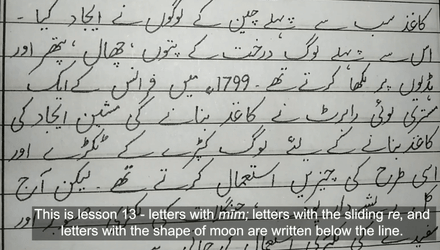 کاغذ سب سے پہلے چین کے لوگوں نے ایجاد کیا۔
اس سے پہلے لوگ درخت کے پتوں، چھال، پتھر اور
ہڈیوں پر لکھا کرتے تھے۔ 1799ء میں فرانس کے ایک
مستری لوئی رابرٹ نے کاغذ بنانے کی مشین ایجاد کی
کاغذ بنانے کے لئے لوگ کپڑے کے ٹکڑے اور
اسی طرح کی چیزیں استعمال کرتے تھے لیکن آج
This is lesson 13 - letters with mim; letters with the sliding re, and
letters with the shape of moon are written below the line.